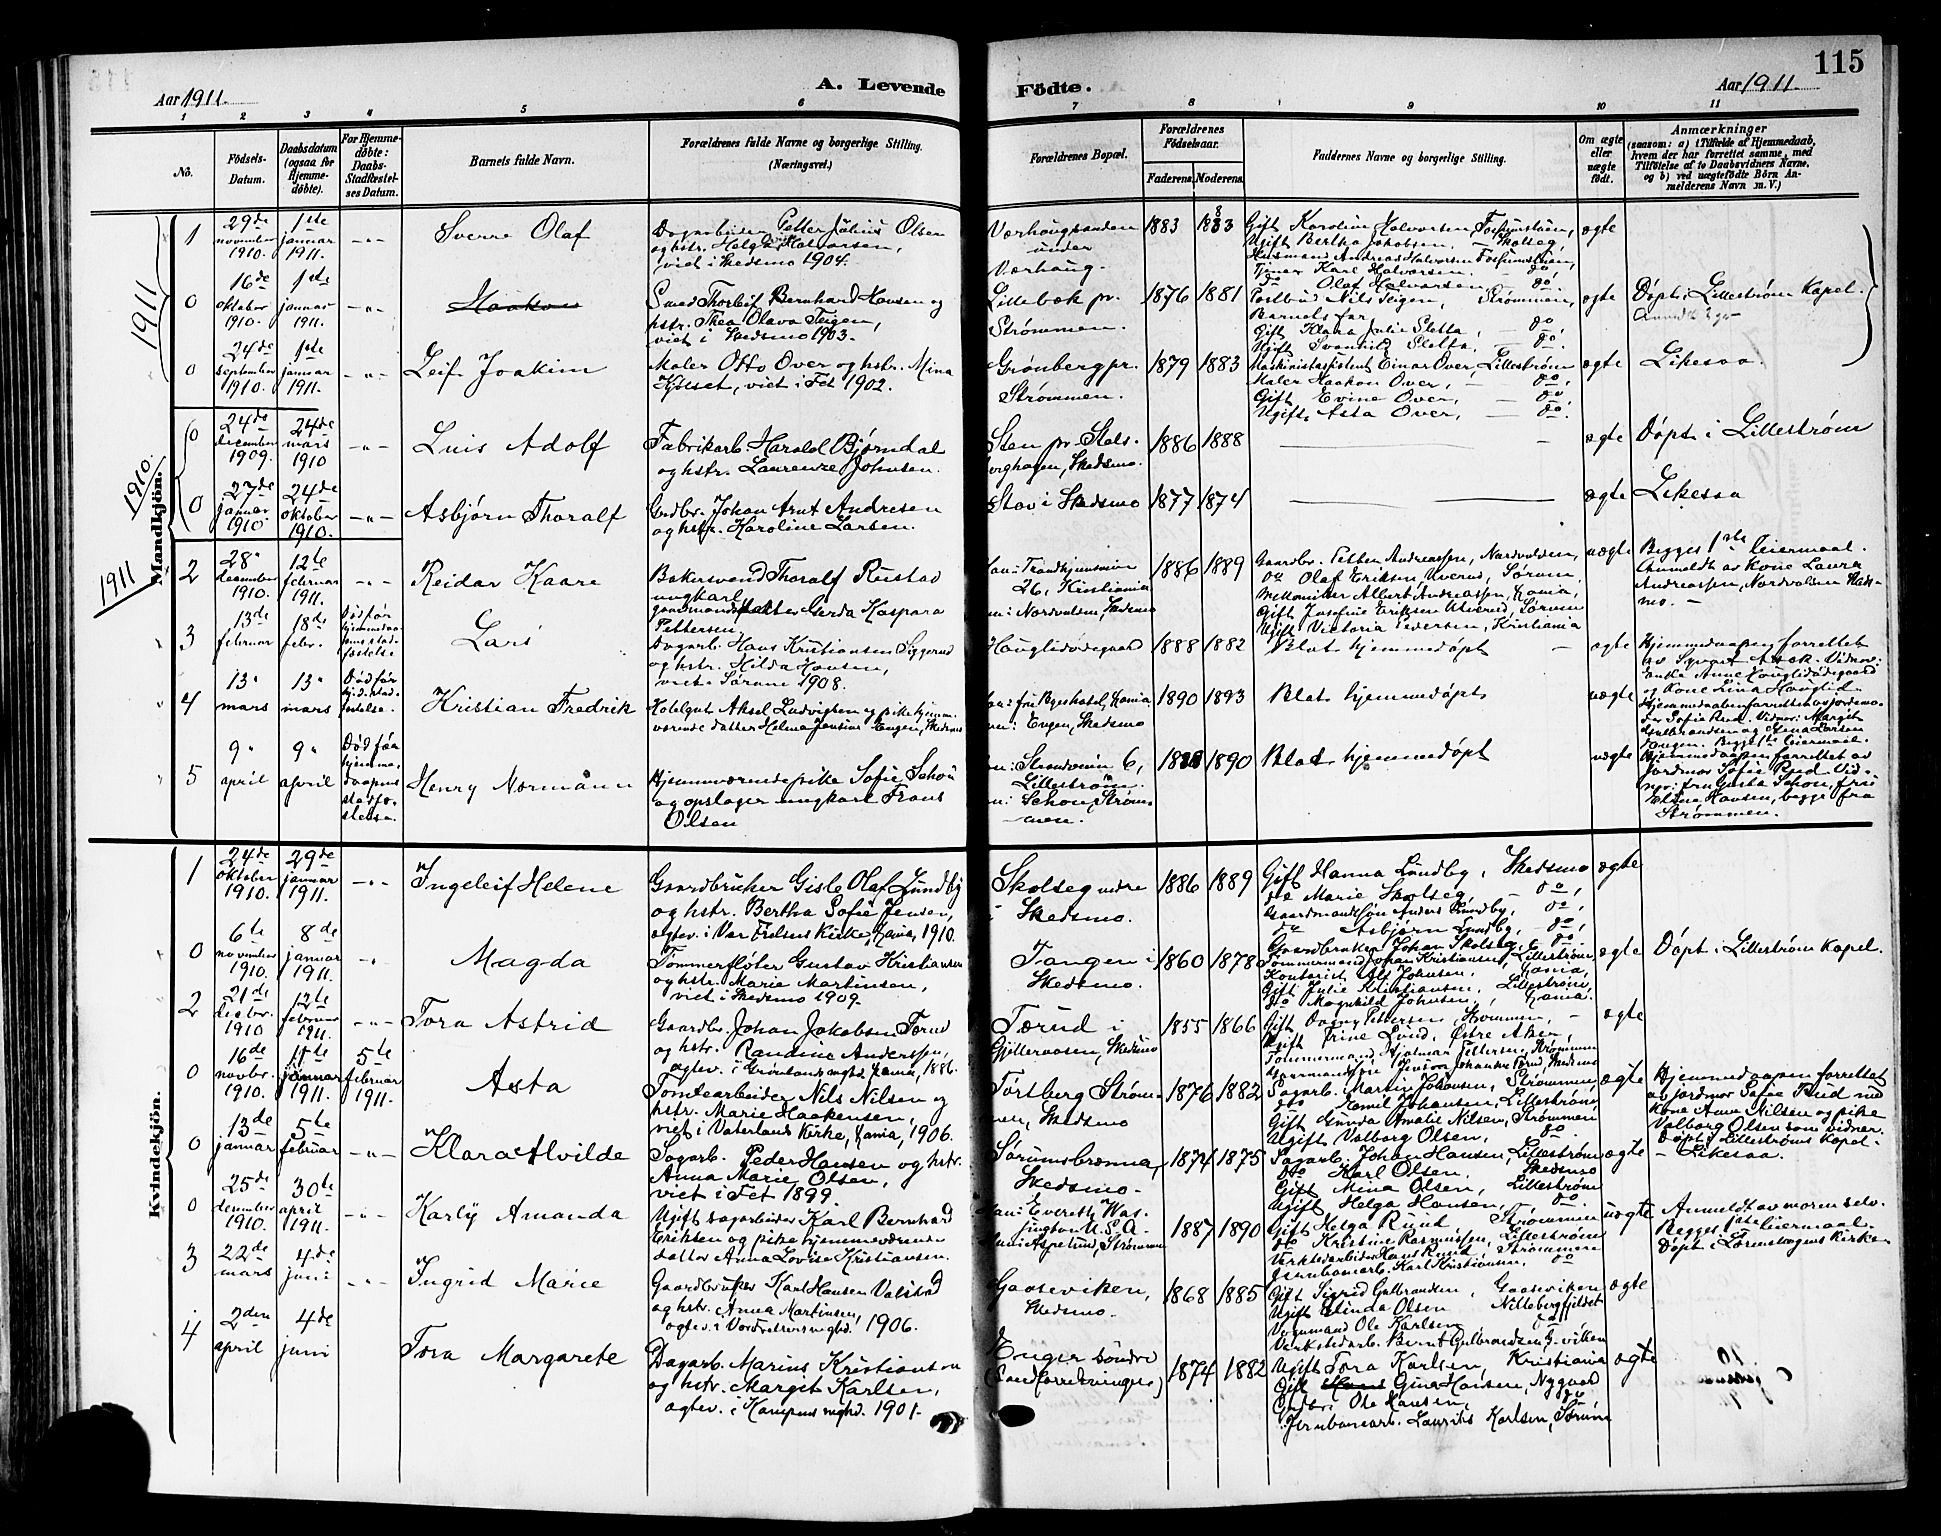 115
Aar 1911.
A. Levende
Födte.
Aar 1911.
1 2 3 4 5 6 7 8 9 10 11
No.
Födsels-
Datum.
Daabsdatum
(ogsaa for
Hjemme-
döbte).
For Hjemme-
döbte:
Daabs-
Stadfæstel-
ses Datum.
Barnets fulde Navn.
Forældrenes fulde Navne og borgerlige Stilling.
(Næringsvei.)
Forældrenes Bopæl.
Forældrenes
Födselsaar.
Faderens.
Moderens.
Faddernes Navne og borgerlige Stilling.
Om ægte
eller
uægte
födt.
Anmærkninger
(saasom: a) i Tilfælde af Hjemmedaab,
hvem der har forrettet samme, med
Tilföielse af to Daabsvidners Navne,
og b) ved uægtefödte Börn An-
melderens Navn m. V.)
1911
1910.
1911
Mandkjön.
1
29de november 1910.
1ste januar 1911.
Sverre Olaf
Dagarbeider Petter Julius Olsen
og hstr. Helga Halvorsen,
viet i Skedsmo 1904.
Værhaugsanden
under
Værhaug.
1883
1883
Gift Karoline Halvorsen, Fossumstuen,
Ugift Bertha Jakobsen, Skolseg,
Husmand Andreas Halvorsen Fossumstuen,
Tjener Karl Halvorsen. do,
do Olaf Halvorsen, do.
ægte
0
16de oktober 1910.
1ste januar 1911.
Haakon
Smed Thorleif Bernhard Hansen og
hstr. Thea Olava Teigen,
viet i Skedsmo 1903.
Lillebæk pr.
Strømmen.
1876
1881
Postbud Nils Teigen, Strømmen,
Barnets far
Gift Klara Julie Sletta, do.
Ugift Svanhild Sletta. do.
ægte
Døpt i Lillestrøm Kapel.
0
24de september 1910.
1ste januar 1911.
Leif Joakim
Maler Otto Over og hstr. Mina
viet i Fet 1902.
Grønberg pr.
Strømmen.
1879
1883
Maskinistassistent Einar Over, Lillestrøm
Maler Haakon Over, do,
Gift Evine Over, do,
Ugift Asta Over, do.
ægte
Likesaa.
0
24de december 1909
24de mars 1910
Luis Adolf
Fabrikarb. Harald Bjørndal
og hstr. Laurenze Johnsen.
Sten pr. Stals-
berghagen, Skedsmo.
1886
1888
ægte
Døpt i Lillestrøm
0
27de januar 1910
24de oktober 1910.
Asbjørn Thoralf
Grdbr. Johan Arnt Andresen
og hstr. Karoline Larsen.
Stav i Skedsmo
1877
1874
ægte
Likesaa
2
28" december 1910.
12te februar 1911.
Reidar Kaare
Bakersvend Thoralf Rustad
ungkarl
gaardmandsdatter Gerda Kaspara
Pettersen
Han: Trondhjemsveien
26, Kristiania
Hun: Nordvolden, Skedsmo
1886
1889
Gaardbr. Petter Andreassen, Nordvolden,
do Olaf Eriksen, Uverud, Sørum,
Albert Andreassen, Kania,
Gift Josefine Eriksen Uverud, Sørum
Ugift Victoria Pedersen, Kristiania
uægte
Begges 1ste leiermaal.
Anmeldt av Kone Laura
Andreassen, Nordvolden Skeds-
mo.
3
13de februar
18de febr.
Død før
hjemmedaa-
pens stad-
fæstelse
Lars
Dagarb. Hans Kristiansen Siggerud
og hstr. Hilda Hansen,
viet i Sørum 1908.
Hauglidødegaard
1888
1882
Blot hjemmedøpt
ægte
Hjemmedaapen forrettet
av
Anne Hauglidødegaard
og Kone Lina Hauglid.
4
13" mars
13" mars
Død før
hj.d. stad-
fæstelse.
Kristian Fredrik
Hotelgut Aksel Ludvigsen og pike hjemme-
værende datter Helma Jensine Engen, Skedsmo
Kania
Hun: Engen, Skedsmo
1890
1893
Blot hjemmedøpt
uægte
Hjemmedaapen forrettet av jordmo-
der Sofie Ruud. Vidner: Margit
Gulbrandsen og Anna Larsen
Begges 1ste leiermaal.
5
9" april
9" april
Død før
hjemme-
daapens
stadfæ-
stelse.
Henry Normann
Hjemmeværende pike Sofie Schou
og opslager ungkarl Frans
Olsen
Han: Strandveien 6,
Lillestrøm.
Hun: Schou, Strøm-
men.
1890
Blot hjemmedøpt
uægte
Hjemmedaapen forrettet av
Jordmor Sofie Ruud. Vid-
ner: fru Gusta Schou, fru
Elise Hansen, begge fra
Strømmen.
Kvindekjön.
1
24de oktober 1910.
29de januar 1911.
Ingeleif Helene
Gaardbruker Gisle Olaf Lundby
og hstr. Bertha Sofie Jensen,
egtev. i Vor Frelsers Kirke, Kania, 1910.
Skolseg nedre
i Skedsmo.
1886
1889
Gift Hanna Lundby, Skedsmo
do Marie Skolseg, do,
Gaardmandssøn Anders Lundby, do,
do Asbjørn Lundby, do.
Gaardbruker Johan Skolseg, do.
ægte
0
6te november 1910.
8de januar 1911.
Magda
Tømmerfløter Gustav Kristiansen
og hstr. Marie Martinsen,
viet i Skedsmo 1909.
Tangen i
Skedsmo.
1860
1878
Tømmermand Johan Kristiansen, Lillestrøm
Kontorist Alf Johnsen, Kania,
Gift Julie Kristiansen, Lillestrøm,
do Magnhild Johnsen, Kania.
ægte
Døpt i Lillestrøm Kapel.
2
21de decbr. 1910
12te februar 1911.
Tora Astrid
Gaardbr. Johan Jakobsen Torud
og hstr. Randine Anderssen,
egtev. i Grønlands mghd. Kania, 1886.
Torud i
Gjelleraasen, Skedsmo
1855
1866
Gift Dagny Pettersen, Strømmen,
Ugift Trine Lund, Østre Aker,
Tømmermand Hjalmar Pettersen, Strømmen
Johansen Torud, Skedsmo
ægte
0
16de novbr. 1910.
15te januar 1911.
5te februar 1911.
Asta
Tomtearbeider Nils Nilsen og
hstr. Marie Haakensen,
viet i Vaterlands Kirke, Kania, 1906.
Tørtberg Strøm-
men, Skedsmo
1876
1882
Sagarb. Martin Johansen, Strømmen,
do Emil Johansen, Lillestrøm
Gift Gunda Amalie Nilsen, Strømmen
Ugift Valborg Olsen, do.
ægte
Hjemmedaapen forrettet
av jordmor Sofie Ruud med
Kone Anna Nilsen og pike
Valborg Olsen som vidner.
Døpt i Lillestrøms Kapel.
0
13de januar
5te februar
Klara Alvilde
Sagarb. Peder Hansen og hstr.
Anna Marie Olsen,
viet i Fet 1899.
Sørumsbrænna,
Skedsmo.
1874
1875
Sagarb. Johan Hansen, Lillestrøm
do Karl Olsen, Skedsmo
Gift Mina Olsen, Lillestrøm
Ugift Helga Hansen, do.
ægte
Likesaa.
0
25de december 1910.
30te april 1911.
Karly Amanda
Ugift sagarbeider Karl Bernhard
Eriksen og pike hjemmeværende
datter Anna Lovise Kristiansen.
Han: Evereth Was-
hington U.S.A.
Hun: Aspelund, Strømmen
1887
1890
Gift Helga Ruud, Strømmen
do Kristine Rasmussen, Lillestrøm
Verkstedarbeider Hans Ruud, Strømmen
Jernbanearb. Karl Kristiansen, do
uægte
Anmeldt av moren selv.
Begges 1ste leiermaal.
Døpt i Lørenskogens Kirke.
3
22de mars
4de juni
Ingrid Marie
Gaardbruker Karl Hansen Valstad
og hstr. Anna Martinsen,
1906.
Gaaseviken,
Skedsmo.
1868
1885
Gift Sigrid Gulbrandsen, Gaaseviken
Ugift Elinda Olsen Nittebergfjeldet
Ole Karlsen
Verkstedarb. Bernt Gulbrandsen G.viken
ægte
4
2den april
4de juni
Tora Margarete
Dagarb. Marius Kristiansen
og hstr. Margit Karlsen,
egtev. i Kampens mghd. 1901.
Enger søndre
1874
1882
Ugift Tora Karlsen, Kristiania
Gift Gina Hansen, Nygaard
Grdbr. Ole Hansen, do
Jernbanearb. Laurits Karlsen, Sørum
ægte